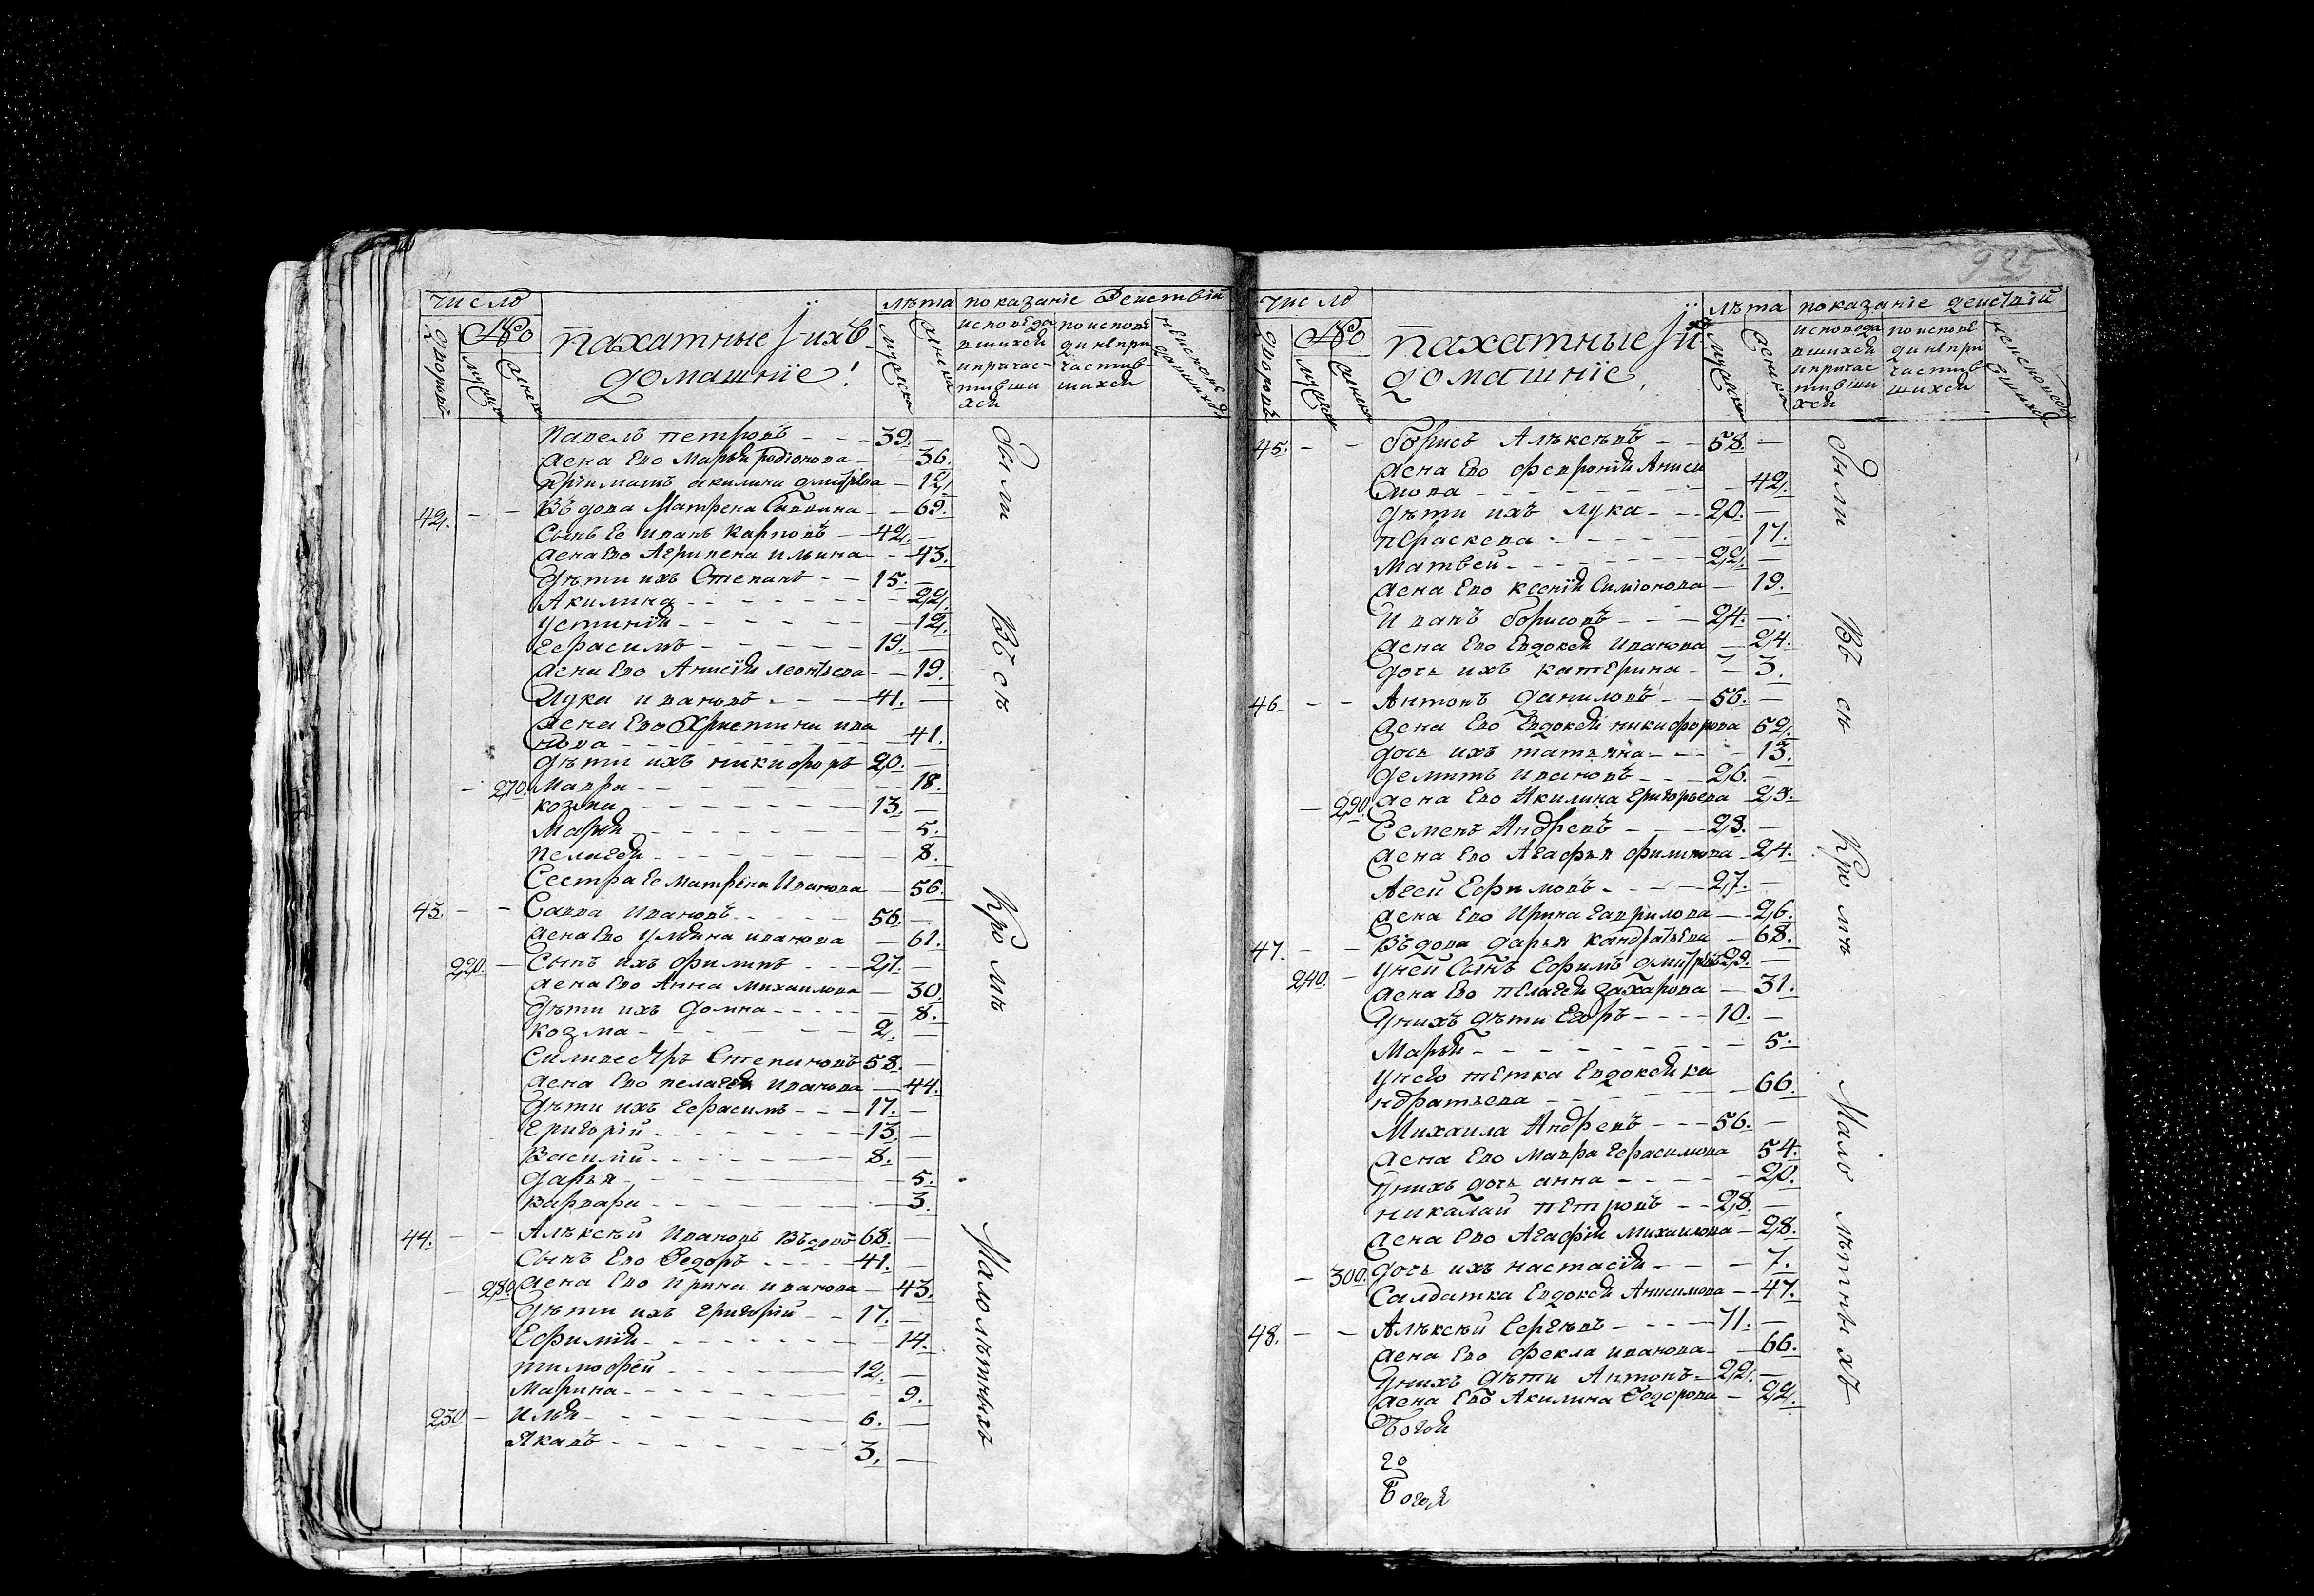 число
№
дворовъ
мужска
женска
пахатные і ихъ
домашніе
лѣта
мужска
женска
показаніе Действій
исповѣда
вшихся
ипричас-
тивши
хся
по исповѣ
ди непри
частив-
шихся
неисповѣд
авшихся
Павелъ петровъ 39.
жена Ево Марья Родіонова 36.
Пріиматъ акилина дмитріева 12.
42. Въдова Матрена Саввина 69.
Сынъ Ее иванъ Карповъ 42.
жена Ево Агрипена ильина 43.
Дѣти ихъ Степанъ 15.
Акилина 22.
Устинія 12.
Герасимъ 19.
жена Ево Анисія леонтьева 19.
Лука ивановъ 41.
жена Ево Христина ива
нова 41.
Дѣти ихъ никифоръ 20.
270. Мавра 18.
козма 13.
Марья 5.
пелагея 8.
Сестра Ее матрена Иванова 56.
43. Савва Ивановъ 56.
жена Ево Ульяна иванова 61.
220. Сынъ ихъ филипъ 27.
жена Ево Анна михаилова 30.
Дѣти ихъ Домна 8.
козма 2.
Силивестръ Степановъ 58.
жена Ево пелагея Иванова 44.
Дѣти ихъ Герасимъ 17.
Григорій 13.
Василій 8.
дарья 5.
варвара 3.
44. Алѣксѣй Ивановъ Въдовъ 68.
Сынъ Ево Федоръ 41.
280. жена Ево Ирина иванова 43.
Дѣти ихъ Григорій 17.
Ефимія 14.
тимофей 12.
Марина 9.
230. Илья 6.
Яковъ 3.
были Въ сѣ Кро мѣ Малолѣтныхъ
935
число
№
дворовъ
мужска
женска
пахатные і ихъ
домашніе
лѣта
мужска
женска
показаніе действій
исповѣда
вшихся
ипричас
тивши
хся
по исповѣ
ди непри
частив
шихся
неисповеда
вшихся
45. Борисъ Алѣксѣвъ 58.
жена Ево феврония Аниси
мова 42.
дѣти ихъ лука 20.
пераскева 17.
Матвей 22.
жена Ево ксенія Симіонова 19.
Иванъ Борисовъ 24.
жена Ево Евдокея Иванова 24.
дочь ихъ катерина 3.
46. Антонъ даниловъ 56.
жена Ево Евдокея никифорова 52.
дочь ихъ татьяна 13.
Дементъ Ивановъ 26.
290. жена Ево Акилина Григорьева 25.
Семенъ Андревъ 23.
жена Ево Агафья филипова 24.
Агей Ефимовъ 27.
жена Ево Ирина гаврилова 26.
47. Въдова дарья кандратьева 68.
240. Уней Сынъ Ефимъ дмитріевъ 29.
жена Ево пелагея захарова 31.
Унихъ дѣти Егоръ 10.
Марья 5.
Унего тетка Евдокея ка
ндратьева 66.
Михаила Андревъ 56.
жена Ево мавра Герасимова 54.
Унихъ дочь анна 20.
николай петровъ 28.
жена Ево Агафія михаилова 28.
300. дочь ихъ настасія 7.
Салдатка Евдокея Анисимова 47.
48. Алѣксѣй Сергѣвъ 71.
жена Ево фекла иванова 66.
Унихъ дѣти Антонъ 22.
жена Ево Акилина Федорова 22.
были Въ сѣ Кро мѣ Мало лѣтныхъ